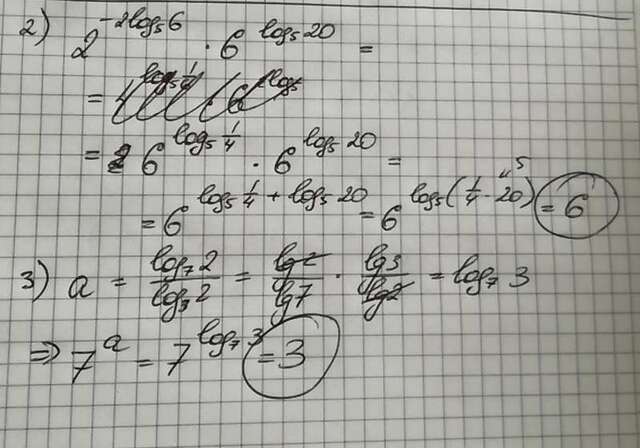 2) 2^{-2log₅6} · 6^{log₅20} =
= 6^{log₅ 1/4} · 6^{log₅20} =
= 6^{log₅ 1/4 + log₅20} = 6^{log₅(1/4 · 20)} = 6
" 5
3) a = log₇2 / log₃2 = lg2 / lg7 · lg3 / lg2 = log₇3
⇒ 7^a = 7^{log₇3} = 3